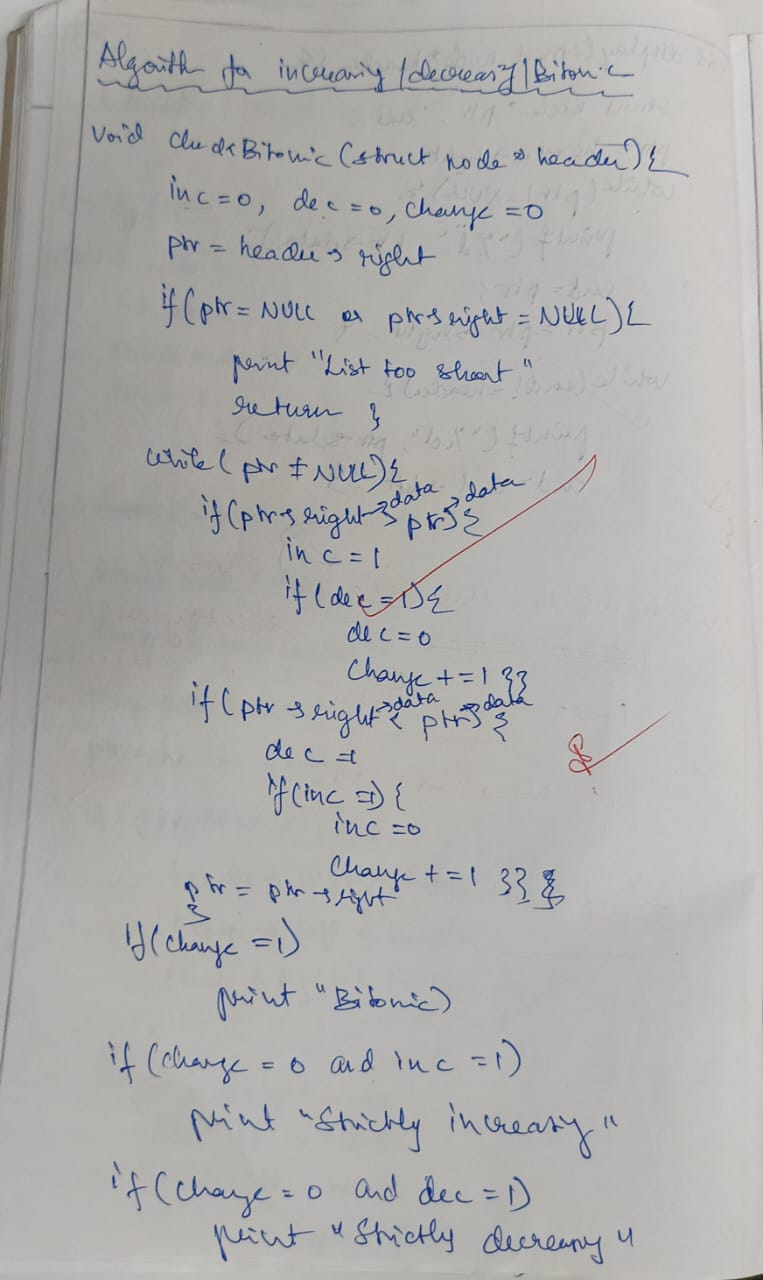 Algorith for increasing /decreasing/Bitonic
void CheckBitonic (struct node * header){
inc=0, dec=0, change=0
ptr = header → right
if(ptr = NULL or ptr→right = NULL){
print "List too short"
return }
while( ptr ≠ NULL){
if(ptr→right→data > ptr→data){
inc=1
if(dec=1){
dec=0
change+=1 }}
if(ptr→right→data < ptr→data){
dec=1
if(inc=1){
inc=0
change+=1 }}
ptr = ptr→right
}
if(change=1)
print "Bitonic)
if(change = 0 and inc =1)
print "Strictly increasing"
if(change=0 and dec=1)
print "Strictly decreasing"